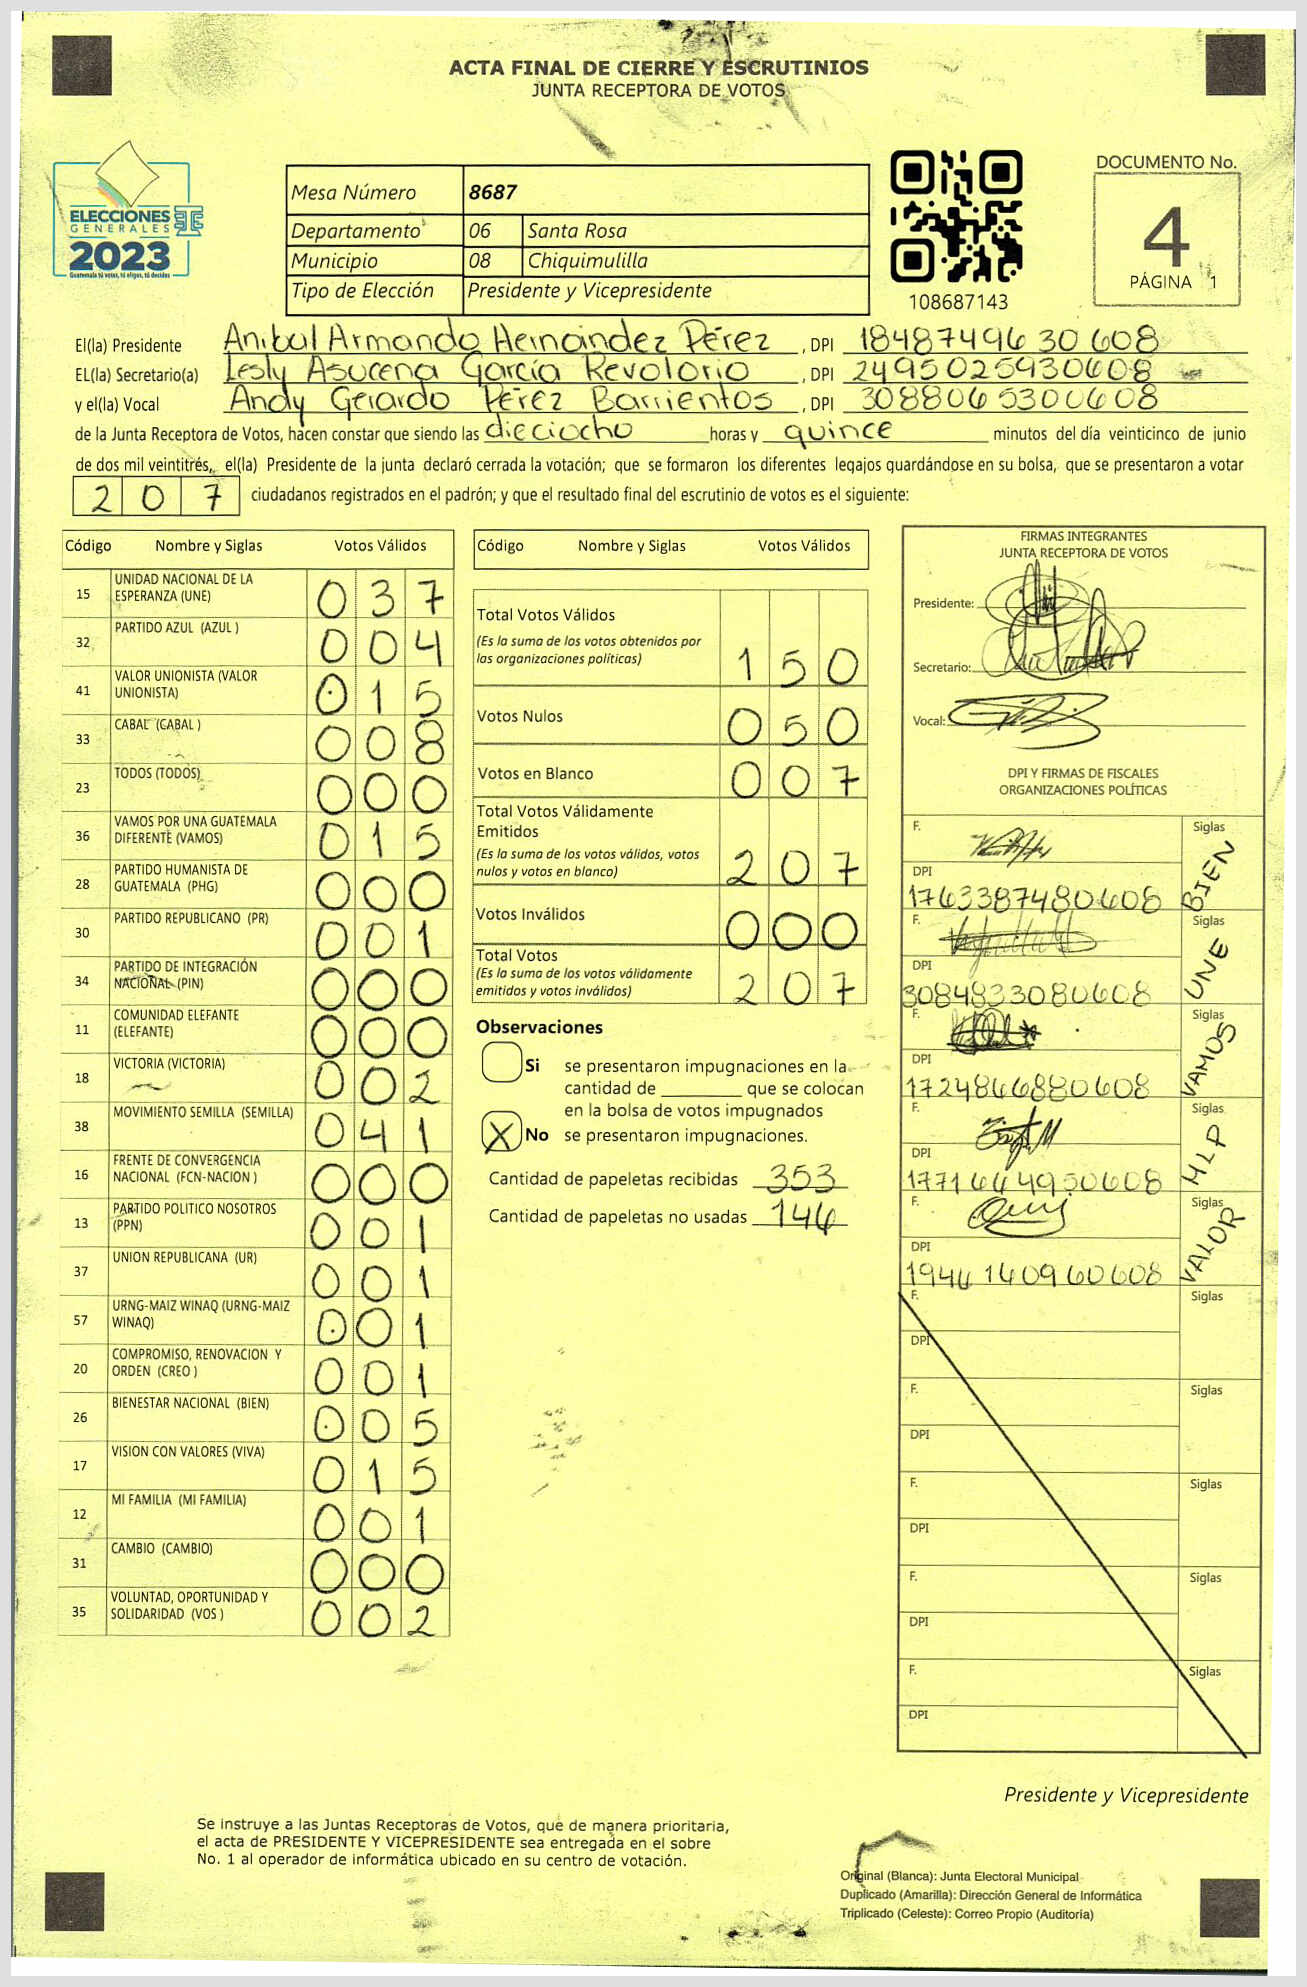 ACTA FINAL DE CIERRE Y ESCRUTINIOS
JUNTA RECEPTORA DE VOTOS
ELECCIONES
GENERALES
2023
Guatemala tú votas, tú eliges, tú decides
Mesa Número 8687
Departamento 06 Santa Rosa
Municipio 08 Chiquimulilla
Tipo de Elección Presidente y Vicepresidente
108687143
DOCUMENTO No.
4
PÁGINA 1
El(la) Presidente Anibal Armando Hernández Pérez , DPI 1848749630608
EL(la) Secretario(a) Lesly Asucena García Revolorio , DPI 2495025930608
y el(la) Vocal Andy Gerardo Pérez Barrientos , DPI 3088065300608
de la Junta Receptora de Votos, hacen constar que siendo las dieciocho horas y quince minutos del día veinticinco de junio
de dos mil veintitrés, el(la) Presidente de la junta declaró cerrada la votación; que se formaron los diferentes legajos guardándose en su bolsa, que se presentaron a votar
207 ciudadanos registrados en el padrón; y que el resultado final del escrutinio de votos es el siguiente:
Código Nombre y Siglas Votos Válidos
15 UNIDAD NACIONAL DE LA ESPERANZA (UNE) 037
32 PARTIDO AZUL (AZUL ) 004
41 VALOR UNIONISTA (VALOR UNIONISTA) 015
33 CABAL (CABAL ) 008
23 TODOS (TODOS) 000
36 VAMOS POR UNA GUATEMALA DIFERENTE (VAMOS) 015
28 PARTIDO HUMANISTA DE GUATEMALA (PHG) 000
30 PARTIDO REPUBLICANO (PR) 001
34 PARTIDO DE INTEGRACIÓN NACIONAL (PIN) 000
11 COMUNIDAD ELEFANTE (ELEFANTE) 000
18 VICTORIA (VICTORIA) 002
38 MOVIMIENTO SEMILLA (SEMILLA) 041
16 FRENTE DE CONVERGENCIA NACIONAL (FCN-NACION ) 000
13 PARTIDO POLITICO NOSOTROS (PPN) 001
37 UNION REPUBLICANA (UR) 001
57 URNG-MAIZ WINAQ (URNG-MAIZ WINAQ) 001
20 COMPROMISO, RENOVACION Y ORDEN (CREO ) 001
26 BIENESTAR NACIONAL (BIEN) 005
17 VISION CON VALORES (VIVA) 015
12 MI FAMILIA (MI FAMILIA) 001
31 CAMBIO (CAMBIO) 000
35 VOLUNTAD, OPORTUNIDAD Y SOLIDARIDAD (VOS ) 002
Código Nombre y Siglas Votos Válidos
Total Votos Válidos
(Es la suma de los votos obtenidos por
las organizaciones políticas) 150
Votos Nulos 050
Votos en Blanco 007
Total Votos Válidamente
Emitidos
(Es la suma de los votos válidos, votos
nulos y votos en blanco) 207
Votos Inválidos 000
Total Votos
(Es la suma de los votos válidamente
emitidos y votos inválidos) 207
Observaciones
Si se presentaron impugnaciones en la
cantidad de ________ que se colocan
en la bolsa de votos impugnados
X No se presentaron impugnaciones.
Cantidad de papeletas recibidas 353
Cantidad de papeletas no usadas 146
FIRMAS INTEGRANTES
JUNTA RECEPTORA DE VOTOS
Presidente:
Secretario:
Vocal:
DPI Y FIRMAS DE FISCALES
ORGANIZACIONES POLÍTICAS
F. Siglas BIEN
DPI
1763387480608
F. Siglas UNE
DPI
3084833080608
F. Siglas VAMOS
DPI
1724866880608
F. Siglas MLP
DPI
1771644950608
F. Siglas VALOR
DPI
1946140960608
F. Siglas
DPI
F. Siglas
DPI
F. Siglas
DPI
F. Siglas
DPI
F. Siglas
DPI
Presidente y Vicepresidente
Se instruye a las Juntas Receptoras de Votos, que de manera prioritaria,
el acta de PRESIDENTE Y VICEPRESIDENTE sea entregada en el sobre
No. 1 al operador de informática ubicado en su centro de votación.
Original (Blanca): Junta Electoral Municipal
Duplicado (Amarilla): Dirección General de Informática
Triplicado (Celeste): Correo Propio (Auditoría)